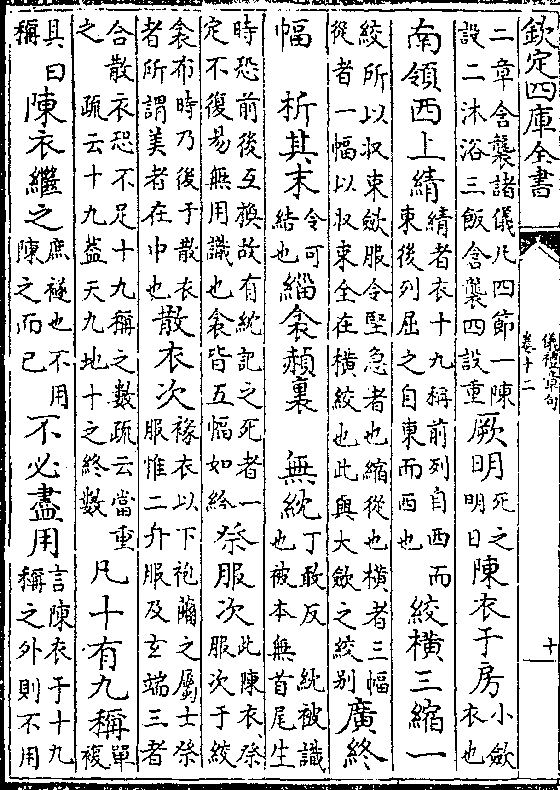 欽定四庫全書
儀禮章句
卷十二
十
二章含襲諸儀凡四節一陳設二沐浴三飯含襲四設重厥明死之明日陳衣于房小歛衣也
南領西上綪綪者衣十九稱前列自西而東後列屈之自東而西也絞橫三縮一
絞所以収束歛服令堅急者也縮從也橫者三幅從者一幅以収束全在橫絞也此與大歛之絞别廣終
幅 析其末令可結也緇衾赬裏 無紞丁敢反 紞被識也被本無首尾生
時恐前後互換故有紞記之死者一定不復易無用識也衾皆五幅如絞祭服次此陳衣祭服次于絞
衾布時乃後于散衣者所謂美者在中也散衣次褖衣以下袍繭之屬士祭服惟二弁服及玄端三者
合散衣恐不足十九稱之數疏云當重之 疏云十九葢天九地十之終數凡十有九稱單複
具曰稱陳衣繼之庶襚也不用陳之而已不必盡用言陳衣于十九稱之外則不用